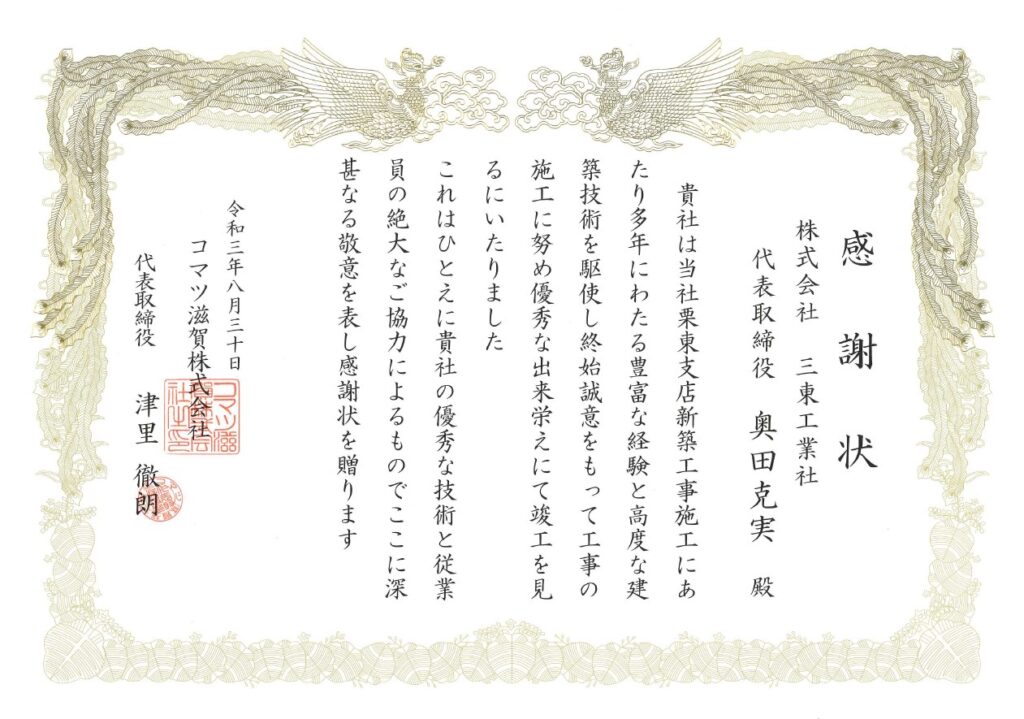 感謝状
株式会社 三東工業社
代表取締役 奥田克実 殿
貴社は当社栗東支店新築工事施工にあ
たり多年にわたる豊富な経験と高度な建
築技術を駆使し終始誠意をもって工事の
施工に努め優秀な出来栄えにて竣工を見
るにいたりました
これはひとえに貴社の優秀な技術と従業
員の絶大なご協力によるものでここに深
甚なる敬意を表し感謝状を贈ります
令和三年八月三十日
コマツ滋賀株式会社
代表取締役 津里 徹朗